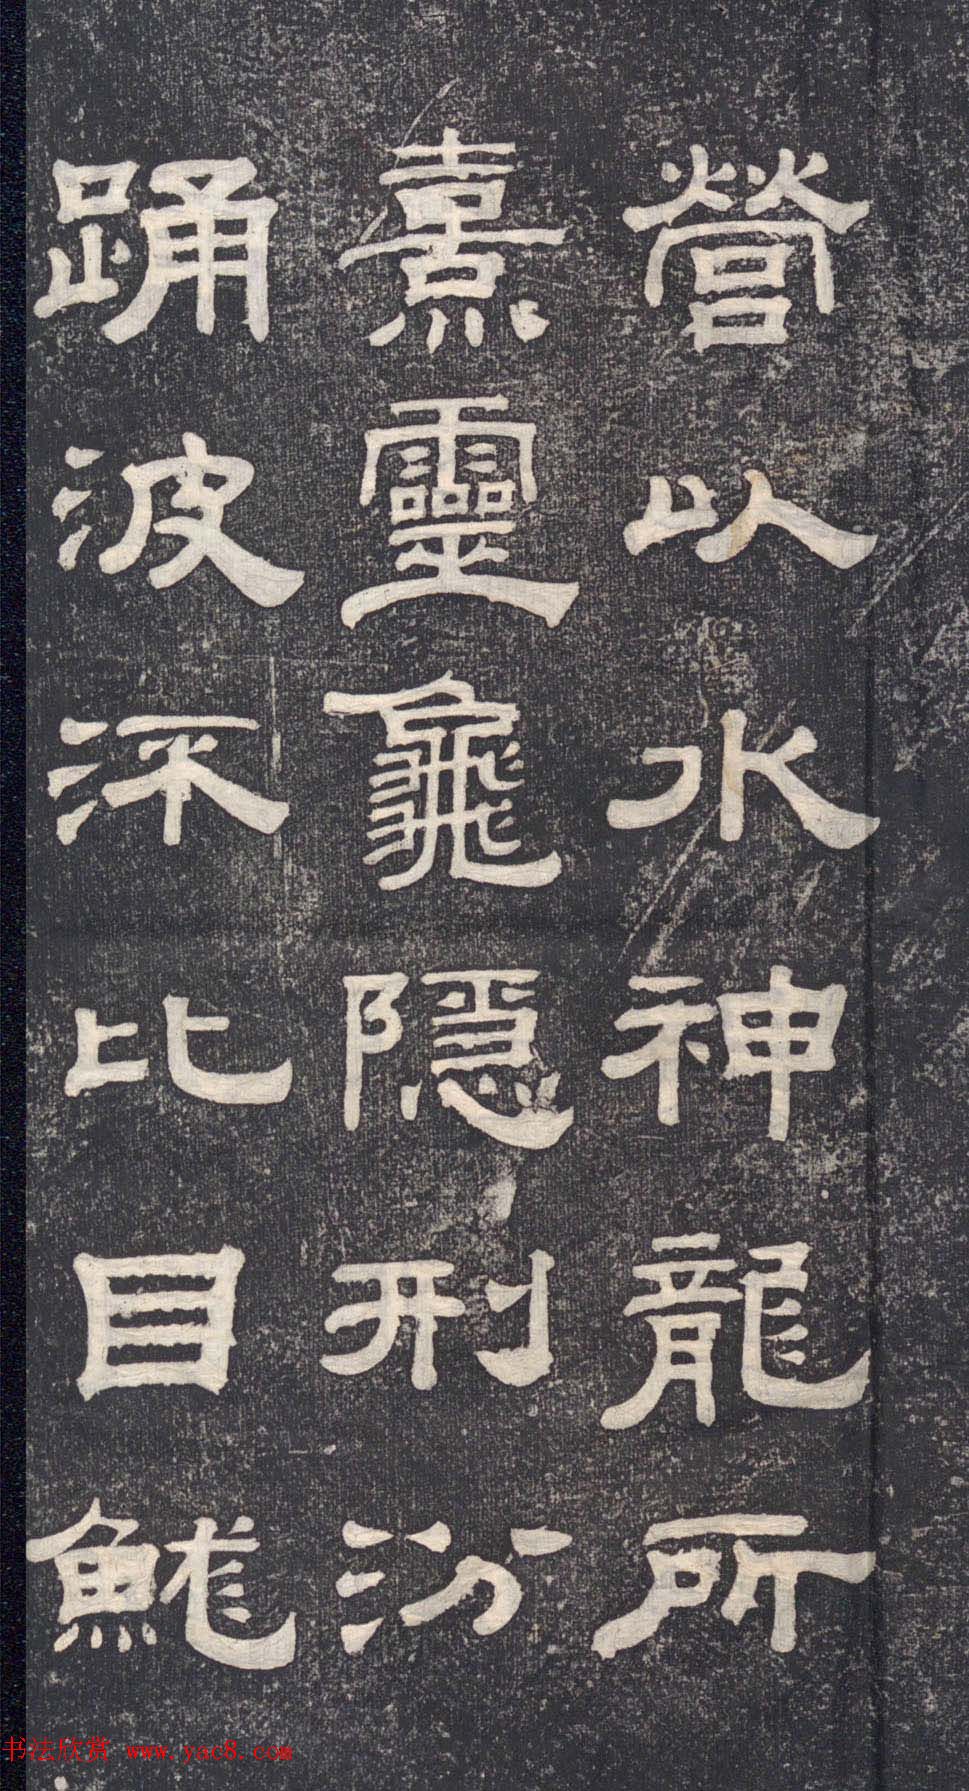 營以水神龍所
熹靈龜隱刑汾
踊波比目
书法欣赏 www.yac8.com